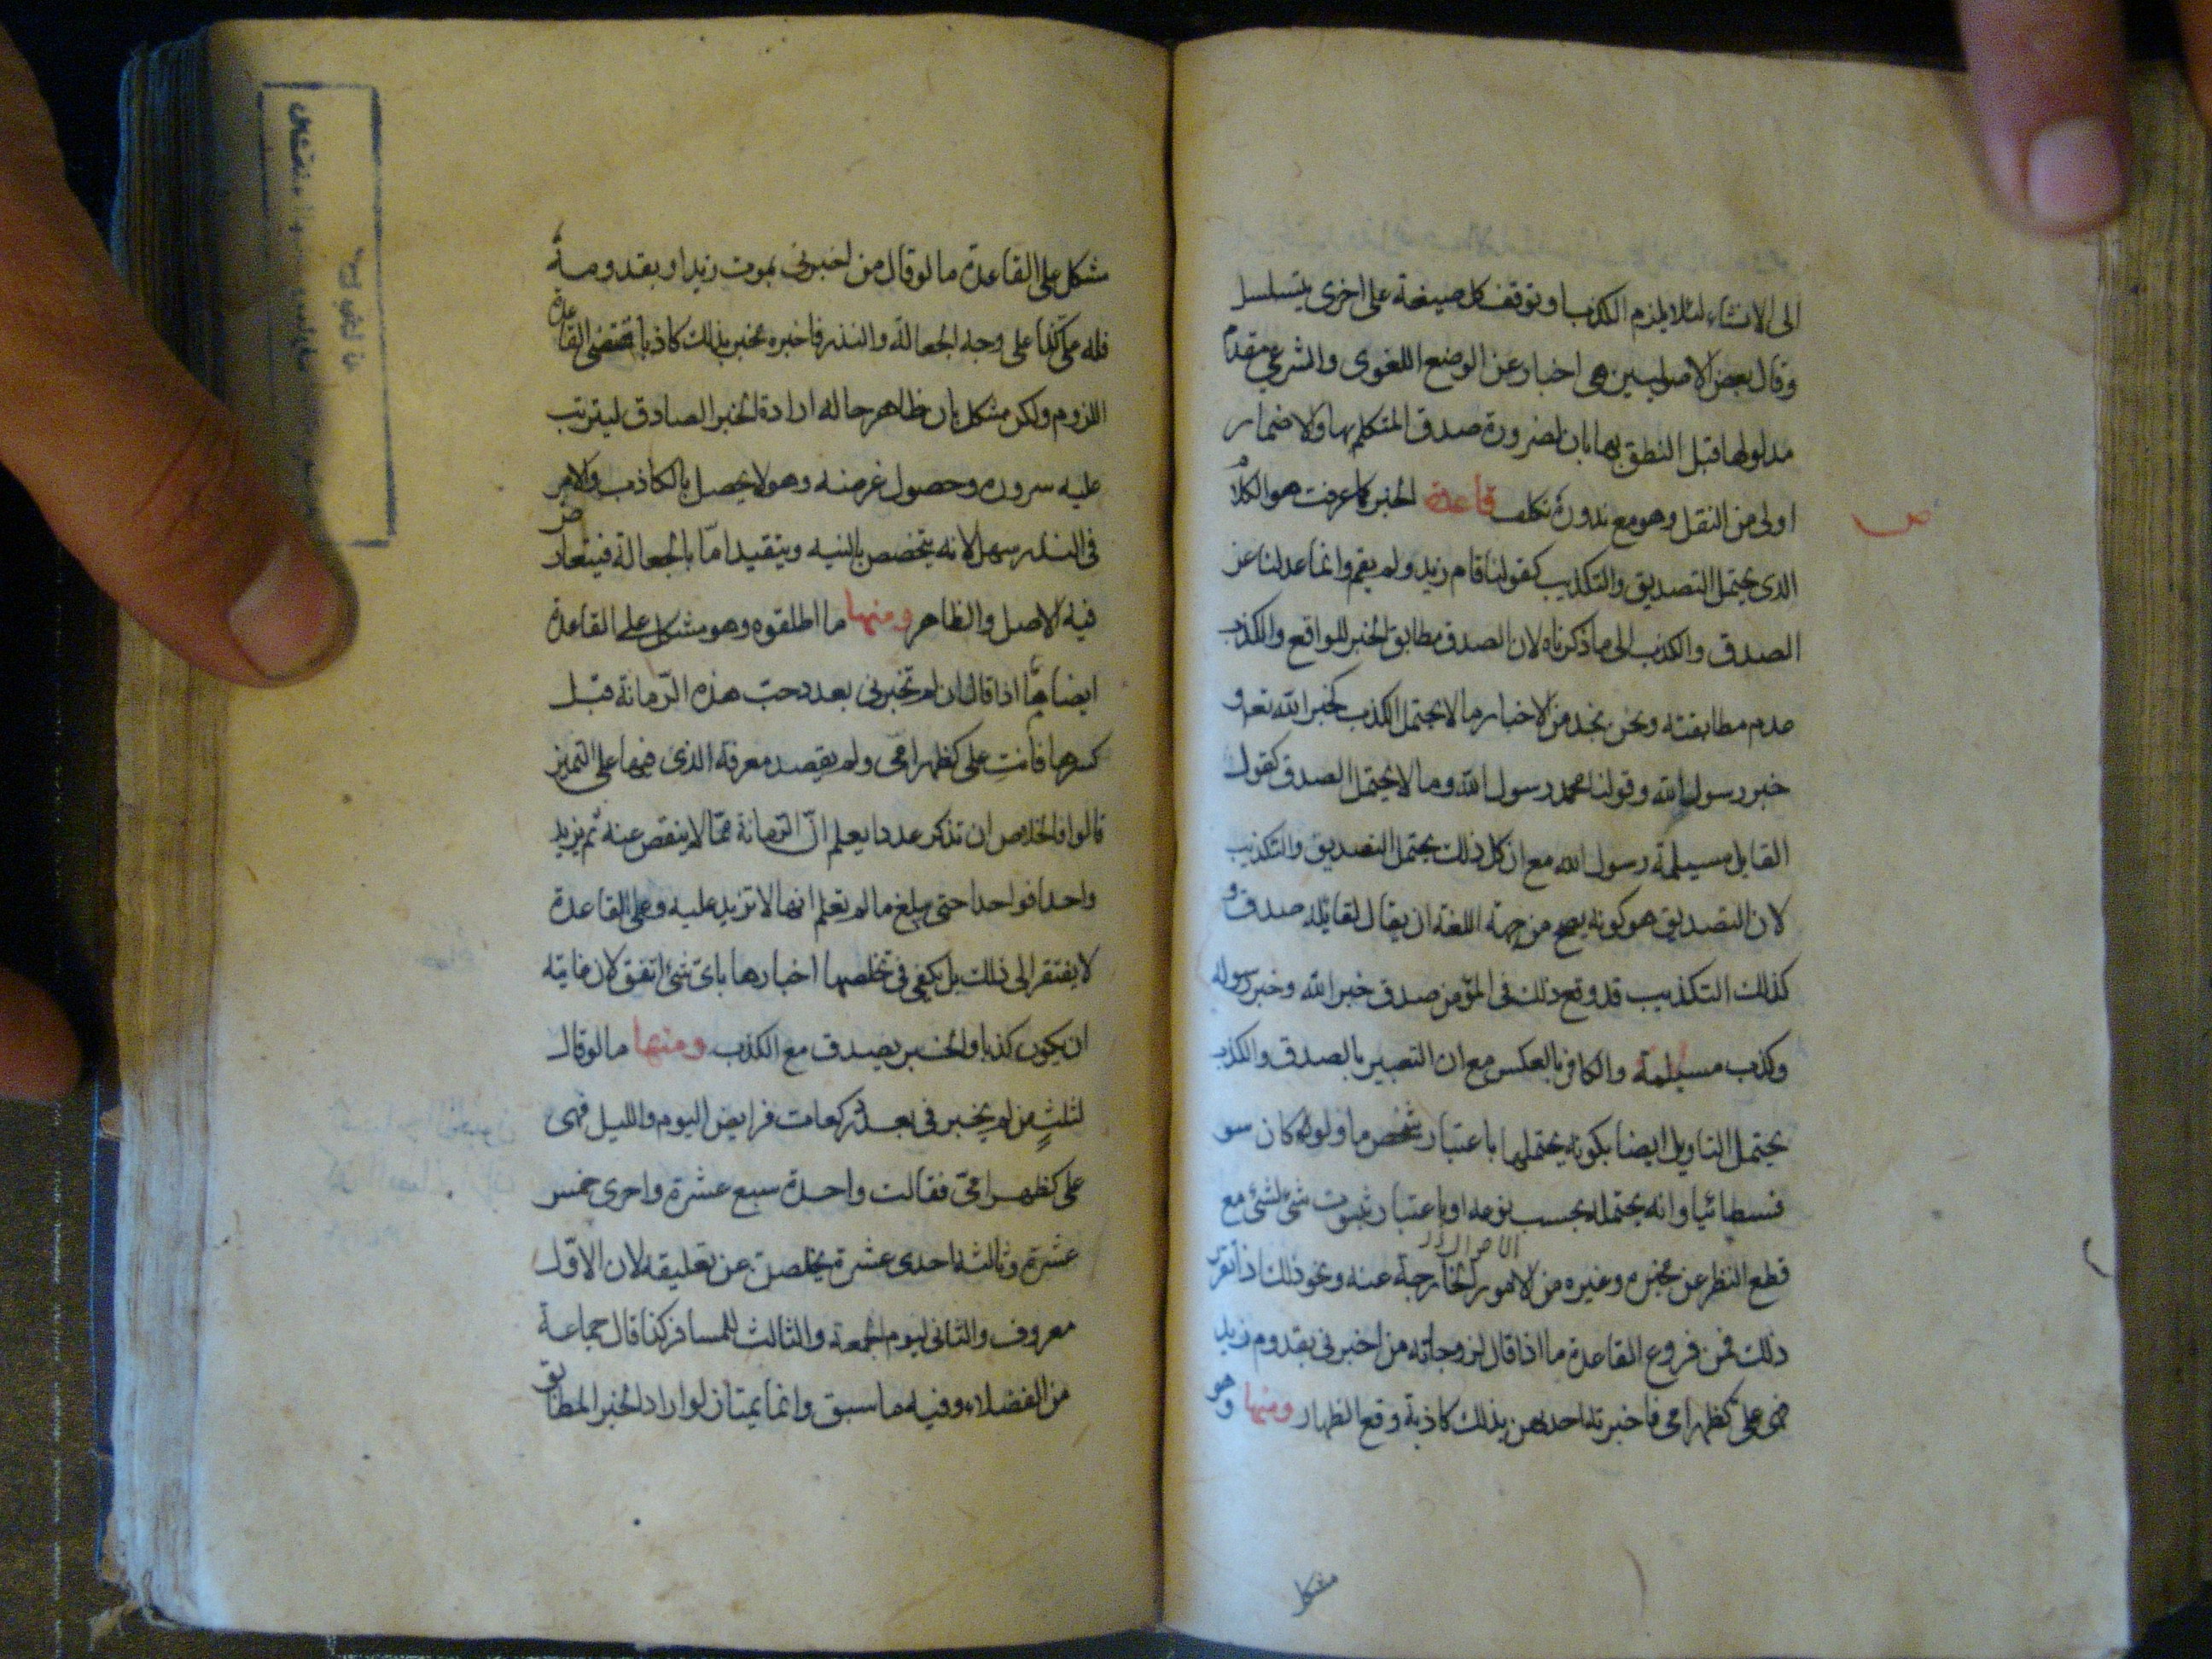 الى الانشاء لئلا يلزم الكذب او توقف كل صيغة على اخرى يتسلسل
وقال بعض الاصوليين هى اخبار عن الوضع اللغوى والشرعى مقدم
مدلولها قبل النطق بها بان لضرورة صدق المتكلم بها والاضمار
اولى من النقل وهو مع ندوره تكلف قاعدة الخبر كما عرفت هو الكلام
الذى يحتمل التصديق والتكذيب كقولنا قام زيد ولم يقم وانما عدلنا عن
الصدق والكذب الى ما ذكرناه لان الصدق مطابق الخبر للواقع والكذب
عدم مطابقته ونحن نجد من الاخبار ما لا يحتمل الكذب كخبر الله تعه و
خبر رسول الله وقولنا محمد رسول الله وما لا يحتمل الصدق كقول
القايل مسيلمة رسول الله مع ان كل ذلك يحتمل التصديق والتكذيب
لان التصديق هو كونه يصح من جهة اللغة ان يقال لقائله صدق و
كذلك التكذيب قد وقع ذلك فى المؤمن صدق خبر الله وخبر رسوله
وكذب مسيلمة والكافر بالعكس مع ان التعبير بالصدق والكذب
يحتمل التاويل ايضا بكونه يحتملها باعتبار شخص ما ولو كان سو
فسطائيا وانه يحتمله بحسب نوعه او باعتبار ثبوت شئ لشئ مع
قطع النظر عن مخبره وغيره من الامور الخارجة عنه ونحو ذلك اذا تقرر
ذلك فمن فروع القاعدة ما اذا قال لزوجاته من اخبرنى بقدوم زيد
فهى على كظهر امى فاخبرته احديهن بذلك كاذبة وقع الظهار ومنها وهو
مشكل
مشكل على القاعدة ما لو قال من اخبرنى بموت زيد او بقدومه
فله على كذا على وجه الجعالة والنذر فاخبره مخبر بذلك كاذبا فمقتضى القاعدة
اللزوم ولكن مشكل بان ظاهر حاله ارادة الخبر الصادق ليترتب
عليه سروره وحصول غرضه وهو لا يحصل بالكاذب والامر
فى النذر سهل لانه يتخصص بالنيه ويتقيد اما بالجعالة فيتعارض
فيه الاصل والظاهر ومنها ما اطلقوه وهو مشكل على القاعدة
ايضا اذا قال ان لم تخبرنى بعدد حب هذه الرمانة قبل
كسرها فانت على كظهر امى ولم يقصد معرفة الذى فيها على التميز
قالوا فالخلاص ان تذكر عددا يعلم ان الرمانة مما لا ينقص عنه ثم يزيد
واحدا فواحدا حتى يبلغ ما لم تعلم انها لا تزيد عليه وعلى القاعدة
لا يفتقر الى ذلك بل يكفى فى تخلصها اخبارها باى شئ اتفق لان غايته
ان يكون كذبا والخبر يصدق مع الكذب ومنها ما لو قال
لثلث من لم يخبرنى بعدد ركعات فرايض اليوم والليل فهى
على كظهر امى فقالت واحدة سبع عشرة واخرى خمس
عشرة وثالثة احدى عشرة يخلصن عن تعليقه لان الاول
معروف والثانى ليوم الجمعة والثالث للمسافر كذا قال جماعة
من الفضلاء وفيه ما سبق وانما يمتاز لو اراد الخبر المطابق